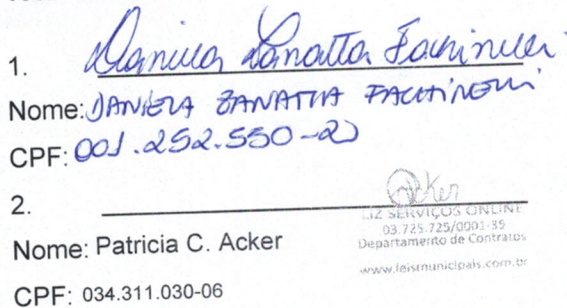 1. Daniela Zanatta Fachinelli
Nome: DANIELA ZANATTA FACHINELLI
CPF: 001.252.550-20
2. Acker
LIZ SERVIÇOS ONLINE
03.725.725/0001-35
Departamento de Contratos
Nome: Patricia C. Acker
www.leismunicipais.com.br
CPF: 034.311.030-06